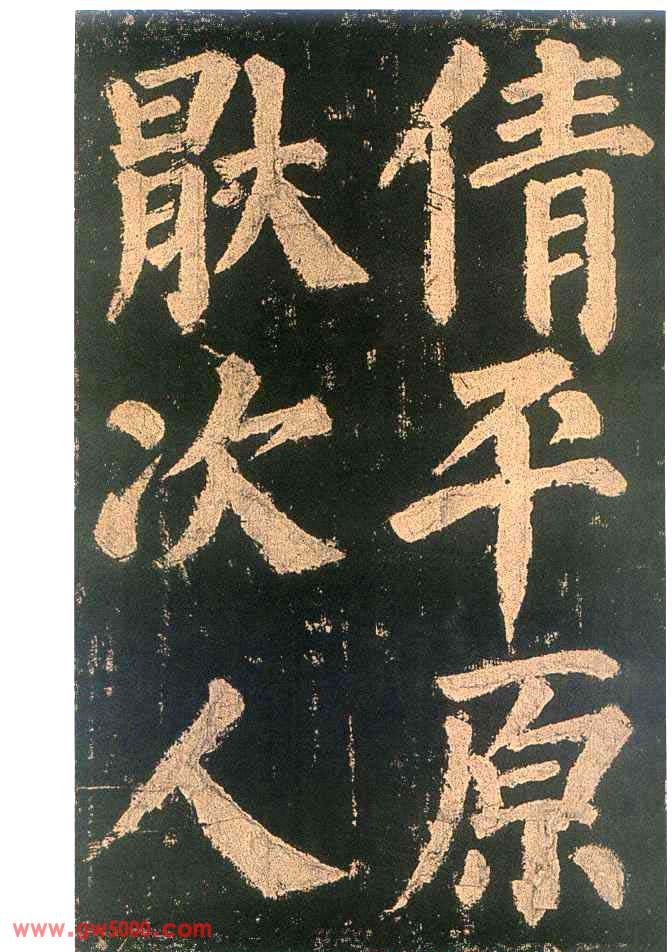 倩平原
猒次人
www.gw5000.com